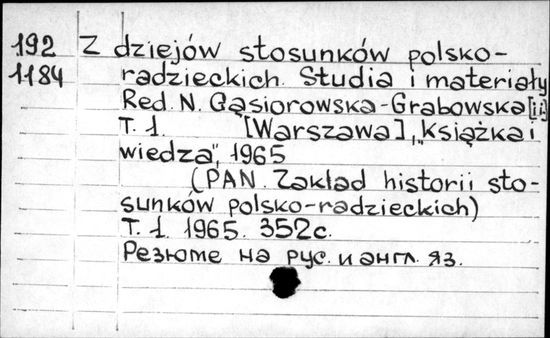 192 Z dziejów stosunków polsko-
1184 radzieckich. Studia i materiały
Red. N. Gąsiorowska-Grabowska [i i.]
T. 1. [Warszawa], "Książka i
wiedza", 1965
(PAN. Zakład historii sto-
sunków polsko-radzieckich)
T. 1. 1965. 352 с.
Резюме на рус. и англ. яз.